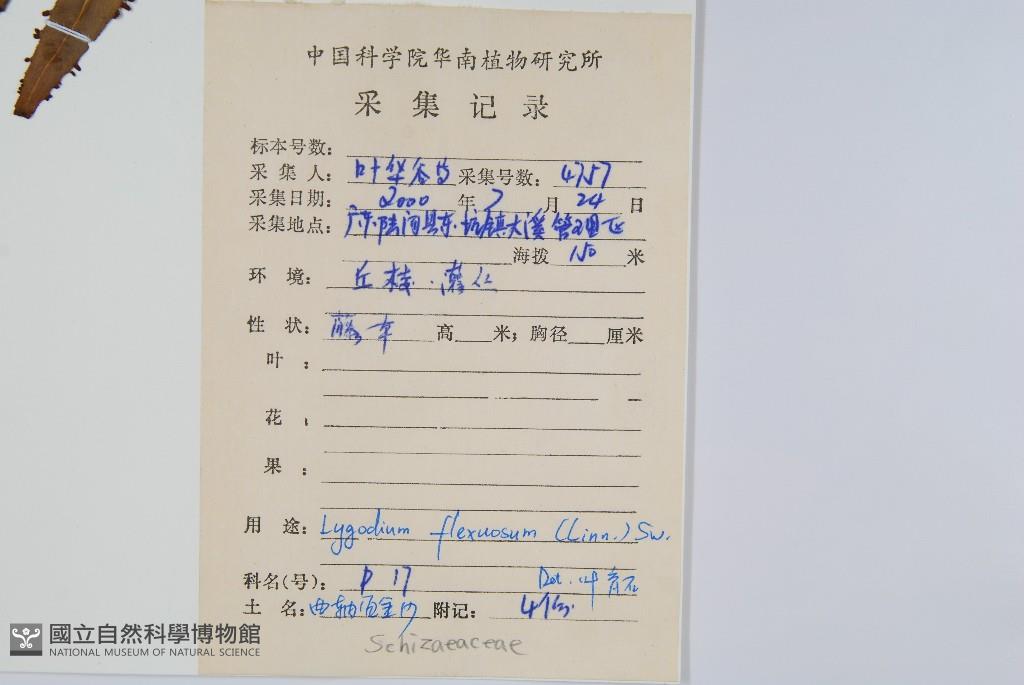 中国科学院华南植物研究所
采集记录
标本号数：
采集人： 叶华谷 采集号数： 4757
采集日期： 2000 年 7 月 24 日
采集地点： 广东陆河县东坑镇大溪管理区
海拨 150 米
环境： 丘
性状： 藤本 高 米；胸径 厘米
叶：
花：
果：
用途： Lygodium flexuosum (Linn.) Sw.
科名(号)： P 17 Det. 叶育石
土名： 曲轴海金沙 附记： 4份
Schizaeaceae
國立自然科學博物館
NATIONAL MUSEUM OF NATURAL SCIENCE